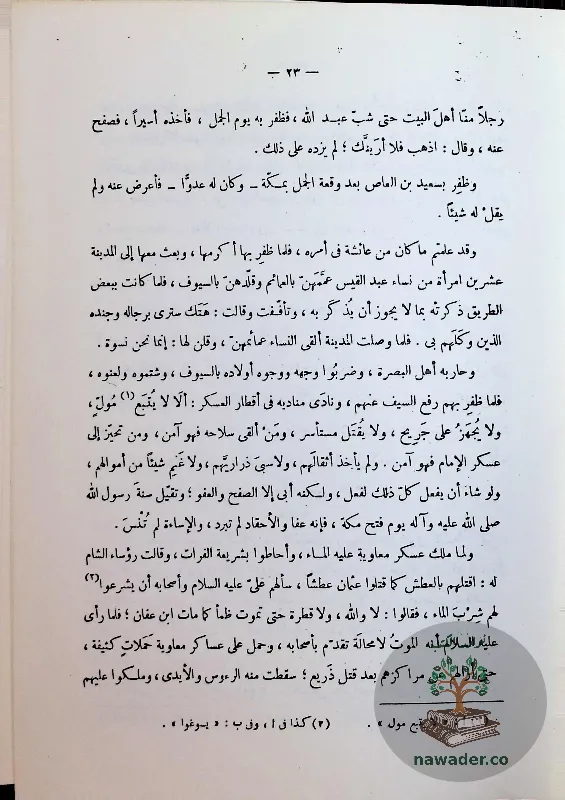 — ٢٣ —
رجلاً منّا أهلَ البيت حتى شبّ عبد الله ، فظفر به يوم الجمل ، فأخذه أسيراً ، فصفح
عنه ، وقال : اذهب فلا أرَينَّك ؛ لم يزده على ذلك .
وظفِر بسعيد بن العاص بعد وقعة الجمل بمكّة – وكان له عدوًّا – فأعرض عنه ولم
يقلْ له شيئاً .
وقد علمتم ما كان من عائشة فى أمره ، فلما ظفِر بها أكرمها ، وبعث معها إلى المدينة
عشرين امرأة من نساء عبد القيس عمَّمَهنّ بالعمائم وقلّدهنّ بالسيوف ، فلما كانت ببعض
الطريق ذكرتْه بما لا يجوز أن يُذكر به ، وتأفّفت وقالت : هَتَك سترى برجاله وجنده
الذين وكّلهم بى . فلما وصلت المدينة ألقى النساء عمائمهنّ ، وقلن لها : إنما نحن نسوة .
وحاربه أهل البصرة ، وضربُوا وجهه ووجوه أولاده بالسيوف ، وشتموه ولعنوه ،
فلما ظفِر بهم رفع السيف عنهم ، ونادَى مناديه فى أقطار العسكر : ألَا لا يُتبَع (١) مُولٍ ،
ولا يُجهَزُ على جَريح ، ولا يُقتَل مستأسر ، ومَنْ ألقى سلاحه فهو آمن ، ومن تحيّز إلى
عسكر الإمام فهو آمن . ولم يأخذ أثقالهم ، ولا سبى ذراريَّهم ، ولا غَنِم شيئاً من أموالهم ،
ولو شاء أن يفعل كلّ ذلك لفعل ، ولكنه أبى إلا الصفح والعفو ؛ وتقيّل سنة رسول الله
صلى الله عليه وآله يوم فتح مكة ، فإنه عفا والأحقاد لم تبرد ، والإساءة لم تُنْسَ .
ولما ملك عسكر معاوية عليه الماء ، وأحاطوا بشريعة الفرات ، وقالت رؤساء الشام
له : اقتلهم بالعطش كما قتلوا عثمان عطشاً ، سألهم علىّ عليه السلام وأصحابه أن يشرعوا (٢)
لهم شِربَ الماء ، فقالوا : لا والله ، ولا قطرة حتى تموت ظمأ كما مات ابن عفان ؛ فلما رأى
عليه السلام أنه الموتُ لا محالة تقدّم بأصحابه ، وحمل على عساكر معاوية حَمَلاتٍ كثيفة ،
حتى أزالهم عن مراكزهم بعد قتل ذَريع ؛ سقطت منه الرءوس والأيدى ، وملكوا عليهم
مول » . (٢) كذا فى ا ، وفى ب : « يسوغوا » .
nawader.co